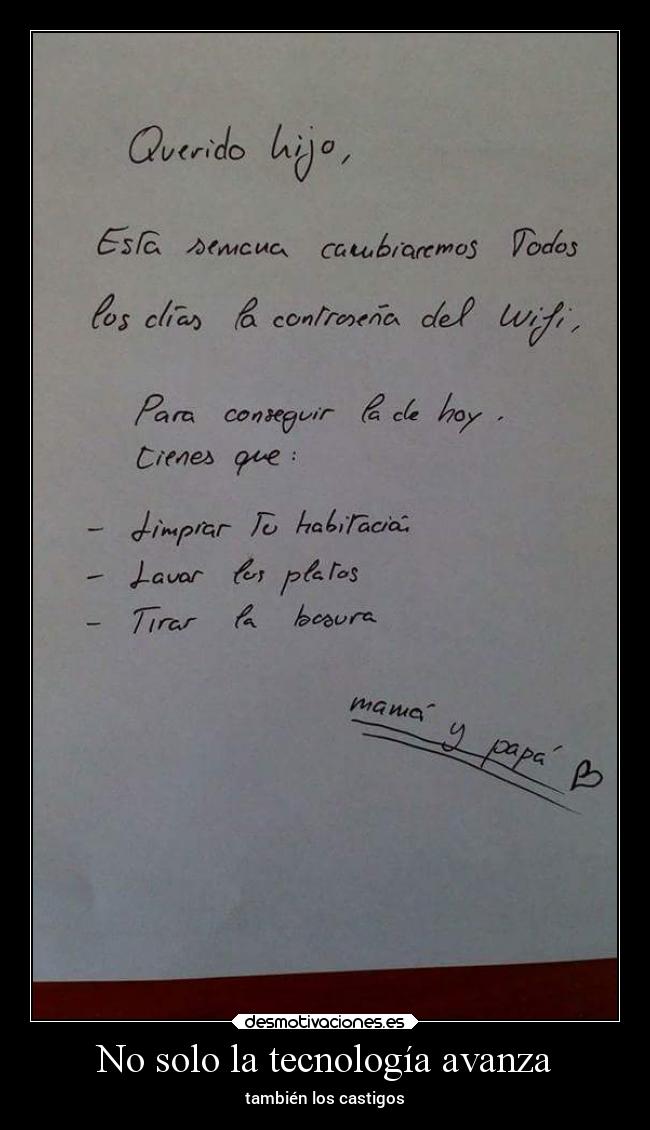 Querido hijo,
Esta semana cambiaremos Todos
los días la contraseña del Wifi,
Para conseguir la de hoy.
tienes que:
- Limpiar Tu habitación
- Lavar los platos
- Tirar la basura
mamá y papá
desmotivaciones.es
No solo la tecnología avanza
también los castigos